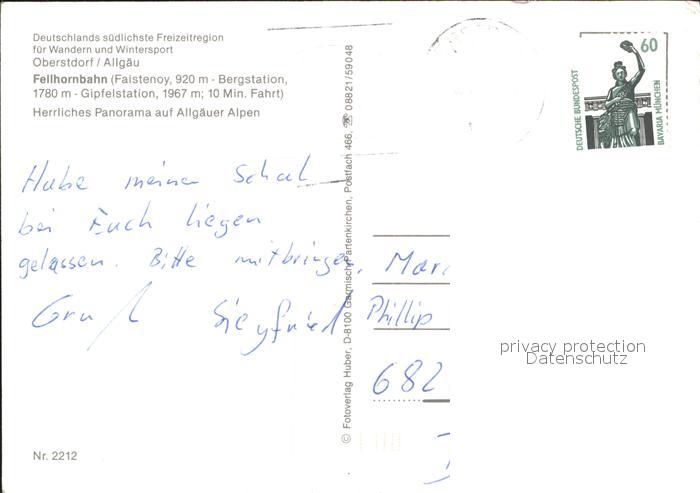 Deutschlands südlichste Freizeitregion
für Wandern und Wintersport
Oberstdorf / Allgäu
Fellhornbahn (Faistenoy, 920 m - Bergstation,
1780 m - Gipfelstation, 1967 m; 10 Min. Fahrt)
Herrliches Panorama auf Allgäuer Alpen
Habe meinen Schal
bei Euch liegen
gelassen. Bitte mitbringen.
Gruß Siegfried
Nr. 2212
© Fotoverlag Huber, D-8100 Garmisch-Partenkirchen, Postfach 466, ☏ 08821/59048
60
DEUTSCHE BUNDESPOST
BAVARIA MÜNCHEN
Phillip
682
privacy protection
Datenschutz